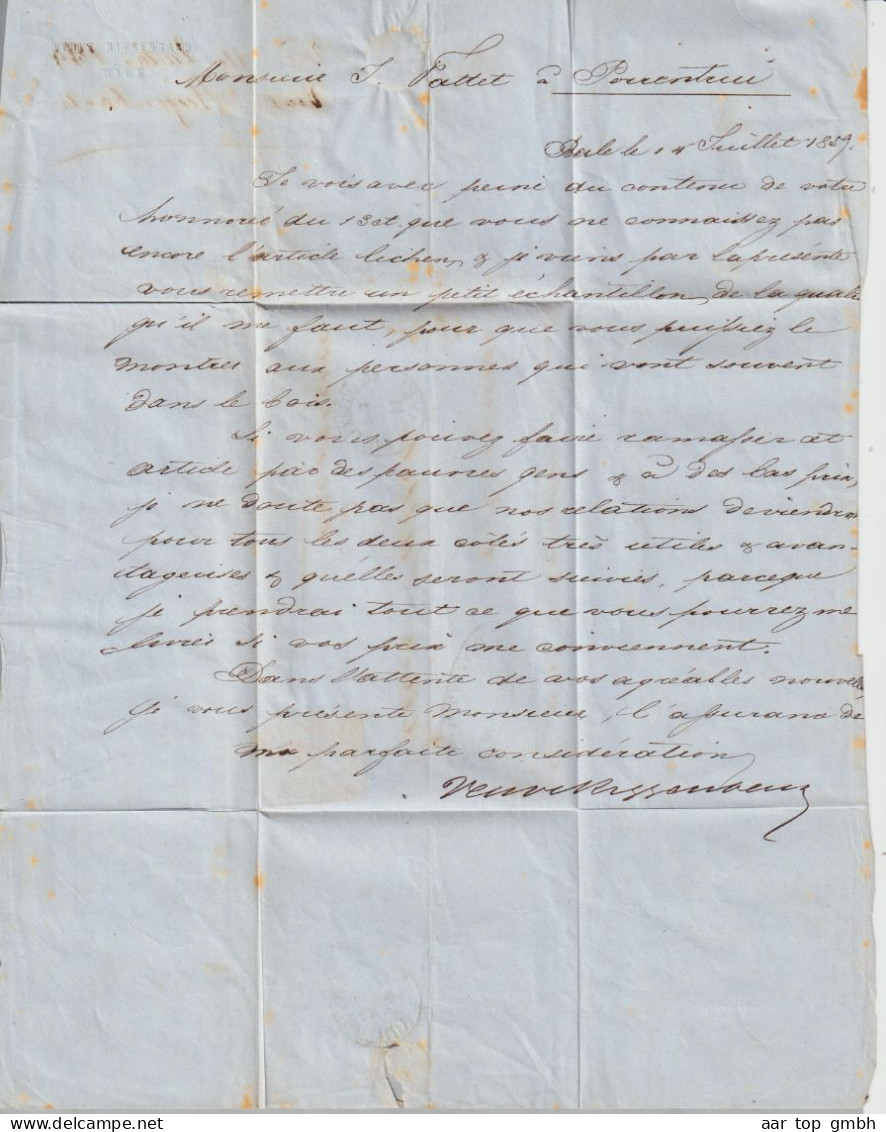 Monsieur J. Fattet à Porrentrui
Bâle le 14 Juillet 1859.
Je vois avec peine du contenu de votre
honnoré du 13 ct. que vous ne connaissez pas
encore l'article lichen, & je viens par la présente
vous remettre un petit échantillon, de la qualité
qu'il me faut, pour que vous puissiez le
montrer aux personnes qui vont souvent
dans le bois.
Si vous pouvez faire ramasser cet
article par des pauvres gens & à des bas prix,
je ne doute pas que nos relations deviendront
pour tous les deux côtés très utiles & avan-
tageuses & qu'elles seront suivies, parceque
je prendrai tout ce que vous pourrez me
livrer si vos prix me conviennent.
Dans l'attente de vos agréables nouvelles
je vous présente Monsieur, l'assurance de
ma parfaite considération
Veuve
www.delcampe.net
aar top gmbh